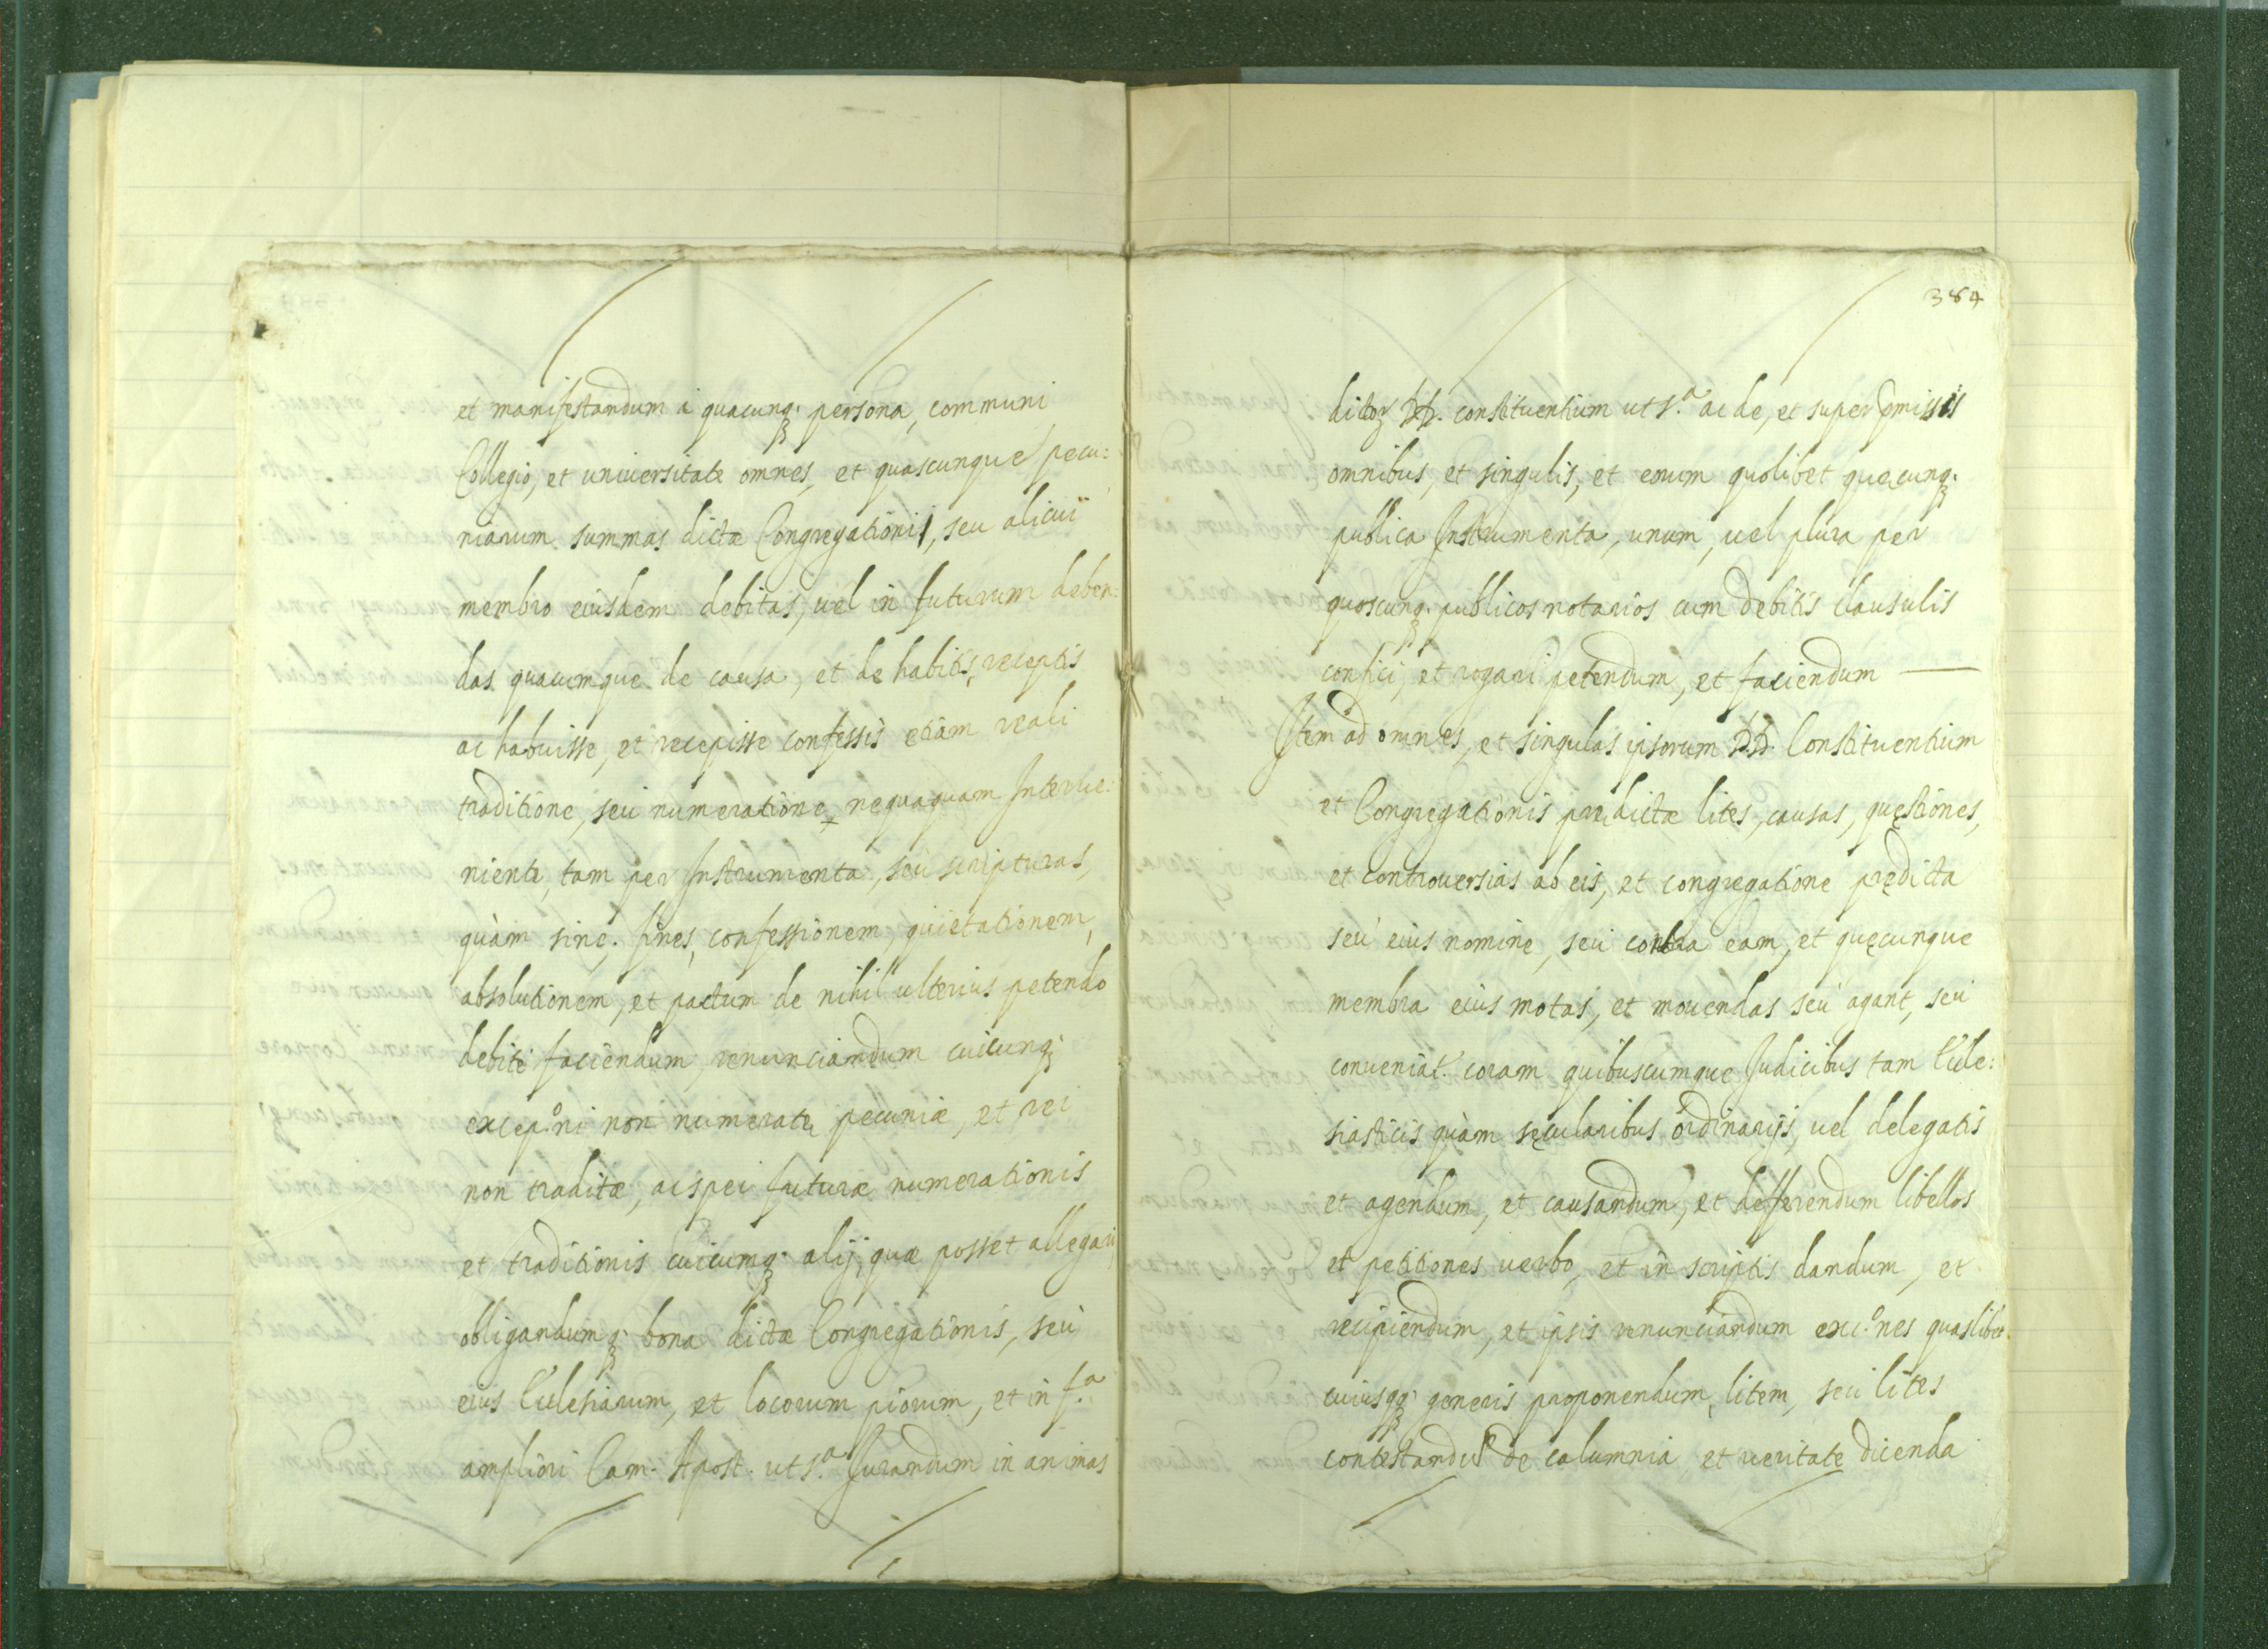 et manifestandum à quacunq; persona, communi
Collegio, et uniuersitate omnes, et quascunque pecu:
niarum summas dictæ Congregationi, seu alicui
membro eiusdem debitas, uel in futurum deben:
das quacumque de causa, et de habitis, receptis
ac habuisse, et recepisse confessis etiam reali
traditione, seu numeratione nequaquam Interue:
niente, tam per Instrumenta, seu scripturas,
quàm sine, fines, confessionem, quietationem,
absolutionem, et pactum de nihil ulterius petendo
debitè faciendum, renunciandum cuicunq;
excep.ⁿⁱ non numeratę pecuniæ, et rei
non traditæ, ac spei futuræ numerationis
et traditionis cuicumq; alij, quæ posset allegari,
obligandumq; bona dictæ Congregationis, seù
eius Ecclesiarum, et locorum piorum, et in f.ª
ampliori Cam. Apost. ut s.ª Jurandum in animas
384
dictoꝝ DD. constituentium ut s.ª ac de, et super pmissis
omnibus, et singulis, et eorum quolibet quęcunq;
publica Instrumenta, unum, uel plura per
quoscunq; publicos notarios cum debitis clausulis
confici, et rogari petendum, et faciendum —
Item ad omnes, et singulas ipsorum DD. Constituentium
et Congregationis prædictæ lites, causas, quęstiones,
et controuersias ab eis, et congregatione prędicta
seù eius nomine, seu contra eam, et quęcunque
membra eius motas, et mouendas seù agant, seu
conueniat. coram quibuscumque Judicibus tam Eccle:
siasticis quàm sęcularibus ordinarijs, uel delegatis
et agendum, et causandum, et defferendum libellos
et petitiones uerbo, et in scriptis dandum, et
recipiendum, et ipsis renunciandum exc.ⁿᵉˢ quaslibet
cuiusqq; generis proponendum, litem, seu lites
contestandũ de calumnia et ueritate dicenda